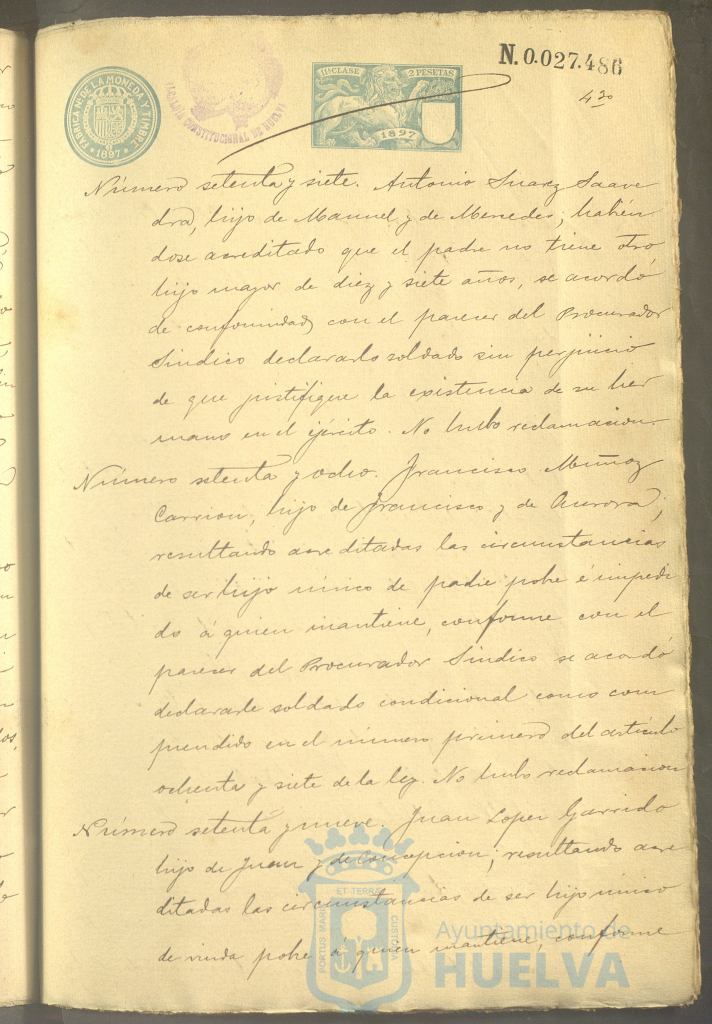 FABRICA NAL DE LA MONEDA Y TIMBRE
1897
ALCALDIA CONSTITUCIONAL DE HUELVA
11ª CLASE 2 PESETAS
1897
N.0.027.486
430
Número setenta y siete. Antonio Suarez Saave
dra, hijo de Manuel y de Mercedes; habién
dose acreditado que el padre no tiene otro
hijo mayor de diez y siete años, se acordó
de conformidad con el parecer del Procurador
Sindico declararlo soldado sin perjuicio
de que justifique la existencia de su her
mano en el ejército. No hubo reclamacion.
Número setenta y ocho. Francisco Muñoz
Carrion, hijo de Francisco y de Aurora;
resultando acreditadas las circunstancias
de ser hijo único de padre pobre é impedi
do á quien mantiene, conforme con el
parecer del Procurador Sindico se acordó
declararle soldado condicional como com
prendido en el número primero del artículo
ochenta y siete de la ley. No hubo reclamacion
Número setenta y nueve. Juan Lopez Garrido
hijo de Juan y de Concepcion; resultando acre
ditadas las circunstancias de ser hijo único
de viuda pobre á quien mantiene, conforme
PORTUS MARIS ET TERRÆ CUSTODIA
Ayuntamiento de
HUELVA